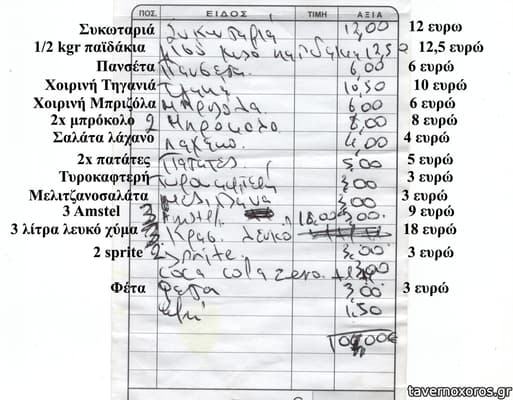 ΠΟΣ. ΕΙΔΟΣ ΤΙΜΗ ΑΞΙΑ
Συκωταριά Συκωταριά 12,00 12 ευρώ
1/2 kgr παϊδάκια μισό κιλό παϊδάκια 12,50 12,5 ευρώ
Πανσέτα Πανσετα. 6,00 6 ευρώ
Χοιρινή Τηγανιά 10,50 10 ευρώ
Χοιρινή Μπριζόλα Μπριζόλα 6,00 6 ευρώ
2x μπρόκολο 2 Μπροκολο 8,00 8 ευρώ
Σαλάτα λάχανο Λαχανο. 4,00 4 ευρώ
2x πατάτες Πατατες. 5,00 5 ευρώ
Τυροκαφτερή Τυροκαφτερή 3,00 3 ευρώ
Μελιτζανοσαλάτα 3,00 3 ευρώ
3 Amstel 3 Amstel 9 ευρώ
3 λίτρα λευκό χύμα 3 Κρασ. λευκό 18,00 18 ευρώ
2 sprite 2 sprite. 3,00 3 ευρώ
coca cola zero.
Φέτα Φετα 3,00 3 ευρώ
1,50
tavernoxoros.gr